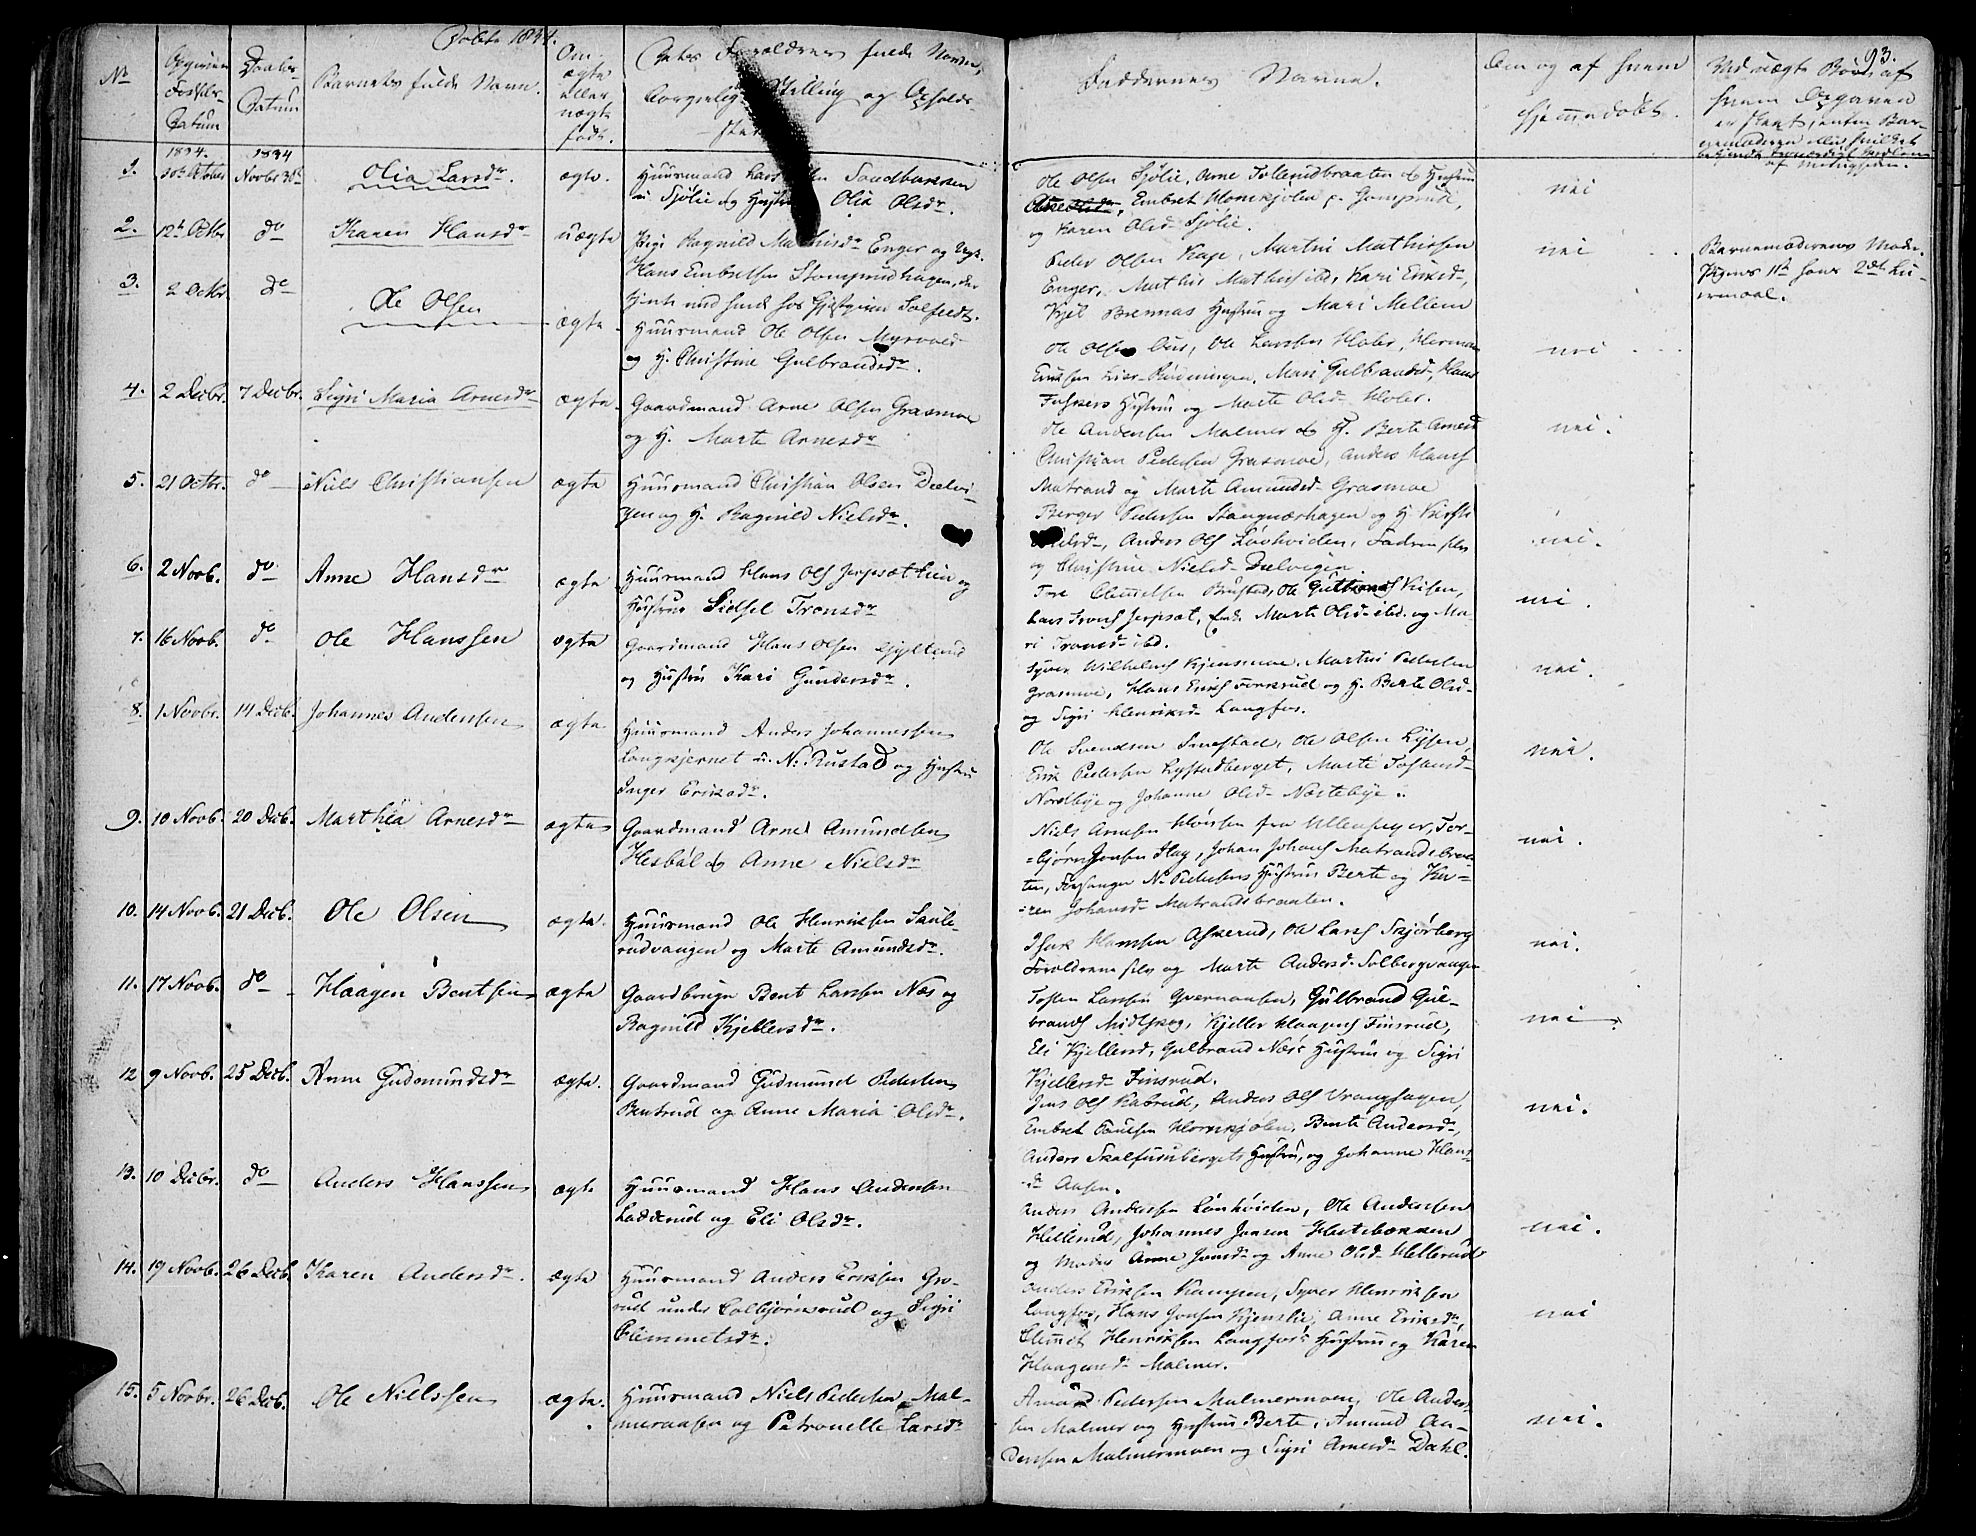 Døbte 1834.
93.
No
Opgiven Fødsels-Datum
Daabs-Datum
Barnets fulde Navn.
Om ægte eller uægte født.
Forældres fulde Navne, borgerlige Stilling og Opholds-
Faddernes Navne.
Om og af hvem hjemmedøbt.
Ved uægte Børn af hvem Opgaven er skeet, enten Bar-
1834. 1834
1. 30te October Novbr 30te Olia Larsdr. ægte. Huusmand Lars Sandbakken
u Sjølie og Hustru Olia Olsdr.
Ole Olsen Sjølie, Arne Tollerudbraaten og Hustru
Embret Hornkjølen p. Gomprud,
og Karen Olsd Sjølie.
nei
2. 12te Octbr do Karen Hansdr uægte Pige Ragnild Mathisdr Enger og Ungk.
Hans Embretsen Stomprudhagen, der
tjente med hende hos Gjæstgiver Solfeldt.
Peder Olsen Kage, Martin Mathissen
Enger, Mathis Mathiss ibd, Kari Ericsd
Kjel Brennas Hustru og Mari Mellem
nei
Barnemoderens Moder
Pigens 11te hans 2det Lei-
ermaal.
3. 2 Octbr do Ole Olsen ægte Huusmand Ole Olsen Myrvold
og H. Christine Gulbrandsdr.
Ole Olsen Aus, Ole Larssen Holer, Herman
Eriksen Lier, Mari Gulbrandsd, Hans
Hustru og Marte Olsd Holer.
nei
4. 2 Decbr. 7 Decbr. Sigri Maria Arnesdr ægte. Gaardmand Arne Olsen Grasmoe
og H. Marte Arnesdr
Ole Andersen Malmer og H. Berte Arnesd
Christian Pedersen Grasmoe, Anders Hanss
Matrand og Marte Amundsd Grasmoe
nei.
5. 21 Octbr. do Niels Christiansen ægte Huusmand Christian Olsen Dælvi-
gen og H. Ragnild Nielsdr.
Berger Pedersen Stangnæshagen og H Kirsti
Nielsd, Anders Ols Løvhviden, Fadren selv
og Christine Nielsd Dælvigen
nei.
6. 2 Novb. do Anne Hansdr ægte Huusmand Hans Ols Jerpsætlien og
Hustrue Sidsel Tronsdr
Tore Clemetsen Bustad, Ole Guttorms Visen,
Lars Trons Jerpsæt, Marte Olsd ibd. og Ma-
ri Tronsd ibd.
nei.
7. 16 Novb. do Ole Hanssen ægte Gaardmand Hans Olsen Gylterud
og Hustru Kari Gundersdr.
Syver Wilhelms Kjensmoe. Martin Pedersen
Grasmoe, Hans Eriks Torkerud og H. Berte Olsd
og Sigri Henriksd Langfos.
nei.
8. 1 Novbr. 14 Decb. Johannes Andersen ægte Huusmand Anders Johannessen
Langkjernet u. N: Rustad og Hustru
Inger Ericsdr.
Ole Svendsen Smestad, Ole Olsen Lysen,
Erik Pedersen Lystadberget, Marte Tostensd
Nordbye og Johanne Olsd Næstebye.
nei.
9. 10 Novb. 20 Decb. Marthea Arnesdr ægte Gaardmand Arne Amundsen
Hesbøl og Anne Nielsdr
Niels Arnesen Hovsen fra Ullensager, Tor-
=bjørn Jonsen Hag, Johan Johans Matrandsbraa-
ten, Forsanger N. Pedersens Hustrue Berte og Ka-
=ren Johansd Matrandsbraaten.
nei.
10. 14 Novb. 21 Decb. Ole Olsen ægte. Huusmand Ole Henriksen Saule-
rudvangen og Marte Amundsdr.
Isak Hansen Askerud, Ole Larss Skjørberg
Forældrene selv og Marte Andersd Solbergvangen
nei.
11. 17 Novb. do Haagen Bentsen ægte Gaardbruger Bent Larssen Næs og
Ragnild Kjellersdr.
Tosten Larssen Qvernaasen, Gulbrand Gul-
brands Midtskog, Kjeller Haagens Finsrud,
Eli Kjellersd, Gulbrand Næs's Hustru og Sigri
Kjellersd Finsrud.
nei.
12 9 Novb. 25 Decb. Anne Gudmundsdr ægte. Gaardmand Gudmund Pedersen
Bentrud og Anne Maria Olsdr.
Jens Ols Kabrud, Anders Ols Vranghagen,
Embret Poulsen Hornkjølen, Berte Andersd,
Anders Skalfuruberget's Hustru, og Johanne Hans-
dr Aasen.
nei.
13. 10 Decbr. do Anders Hanssen ægte Huusmand Hans Andersen
Ladderud og Eli Olsdr.
Anders Andersen Lønhviden, Ole Andersen
Hellerud, Johannes Jonsen Hestebekken,
og Moder Anne Jonsd og Anne Olsd Hellerud
nei.
14. 19 Novb. 26 Decb. Karen Andersdr. ægte Huusmand Anders Eriksen Gro-
rud under Colbjørnsrud og Sigri
Clemmetsdr.
Anders Eriksen Kampen, Syver Henriksen
Langfos, Hans Jonsen Kjenslie, Anne Eriksd,
Clemet Henriksen Langfos's Hustru og Karen
Haagensd Malmer.
nei
15. 5 Novbr. 26 Decb. Ole Nielssen ægte. Huusmand Niels Pedersen Mal-
meraasen og Petronelle Larsdr
Amund Pedersen Malmermoen, Ole Ander-
sen Malmer og Hustrue Berte, Amund An-
derssen Malmermoen og Sigri Arnesd Dahl.
nei.